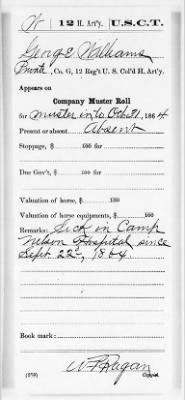 W 12 H. Art'y. U.S.C.T.
George Williams
Privt., Co. G, 12 Reg't U. S. Col'd H. Art'y.
Appears on
Company Muster Roll
for Muster in to Oct 31, 1864
Present or absent Absent
Stoppage, $ 100 for
Due Gov't, $ 100 for
Valuation of horse, $ 100
Valuation of horse equipments, $ 100
Remarks: Sick in Camp
Nelson Hospital since
Sept. 22d, 1864.
Book mark:
Ragan
(358) Copyist.